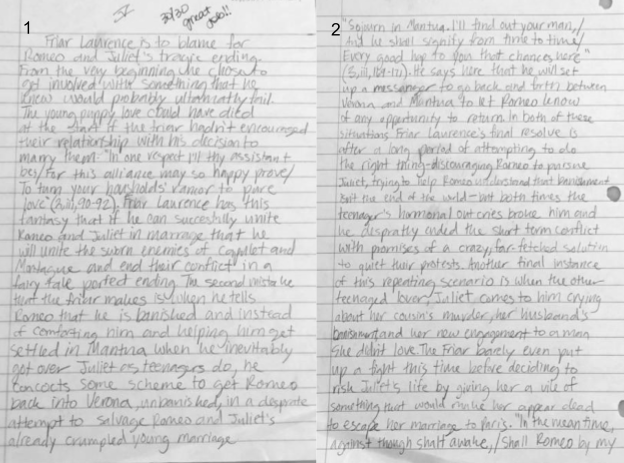 1
30/30
great
job!!
Friar Laurence is to blame for
Romeo and Juliet's tragic ending.
From the very beginning he chose to
get involved with something that he
knew would probably ultimately fail.
The young puppy love could have died
at the start if the friar hadn't encouraged
their relationship with his decision to
marry them. "In one respect I'll thy assistant
be;/ For this alliance may so happy prove/
To turn your households' rancor to pure
love" (3,iii,90-92). Friar Laurence has this
fantasy that if he can succesfully unite
Romeo and Juliet in marrage that he
will unite the sworn enemies of Capulet and
Montague and end their conflict in a
fairy tale ending. The second mistake
that the friar makes is when he tells
Romeo that he is banished and instead
of comforting him and helping him get
settled in Mantua when he inevitably
got over Juliet as teenagers do, he
concocts some scheme to get Romeo
back into Verona, unbanished, in a desprate
attempt to salvage Romeo and Juliet's
already crumpled young marriage
2
"Sojourn in Mantua. I'll find out your man,/
And he shall signify from time to time/
Every good hap to you that chances here"
(3,iii,169-171). He says here that he will set
up a messanger to go back and forth between
Verona and Mantua to let Romeo know
of any opportunity to return. In both of these
situations Friar Laurence's final resolve is
after a long period of attempting to do
the right thing-discouraging Romeo to pursue
Juliet, trying to help Romeo understand that banishment
isn't the end of the world-but both times the
teenager's hormonal outcries broke him and
he despratly ended the short term conflict
with promises of a crazy, far-fetched solution
to quiet their protests. Another final instance
of this repeating scenario is when the other
teenaged lover, Juliet comes to him crying
about her cousin's murder, her husband's
banishment and her new engagement to a man
she didn't love. The Friar barely even put
up a fight this time before deciding to
risk Juliet's life by giving her a vile of
something that would make her appear dead
to escape her marriage to Paris. "In the mean time,
against thou shalt awake,/ Shall Romeo by my